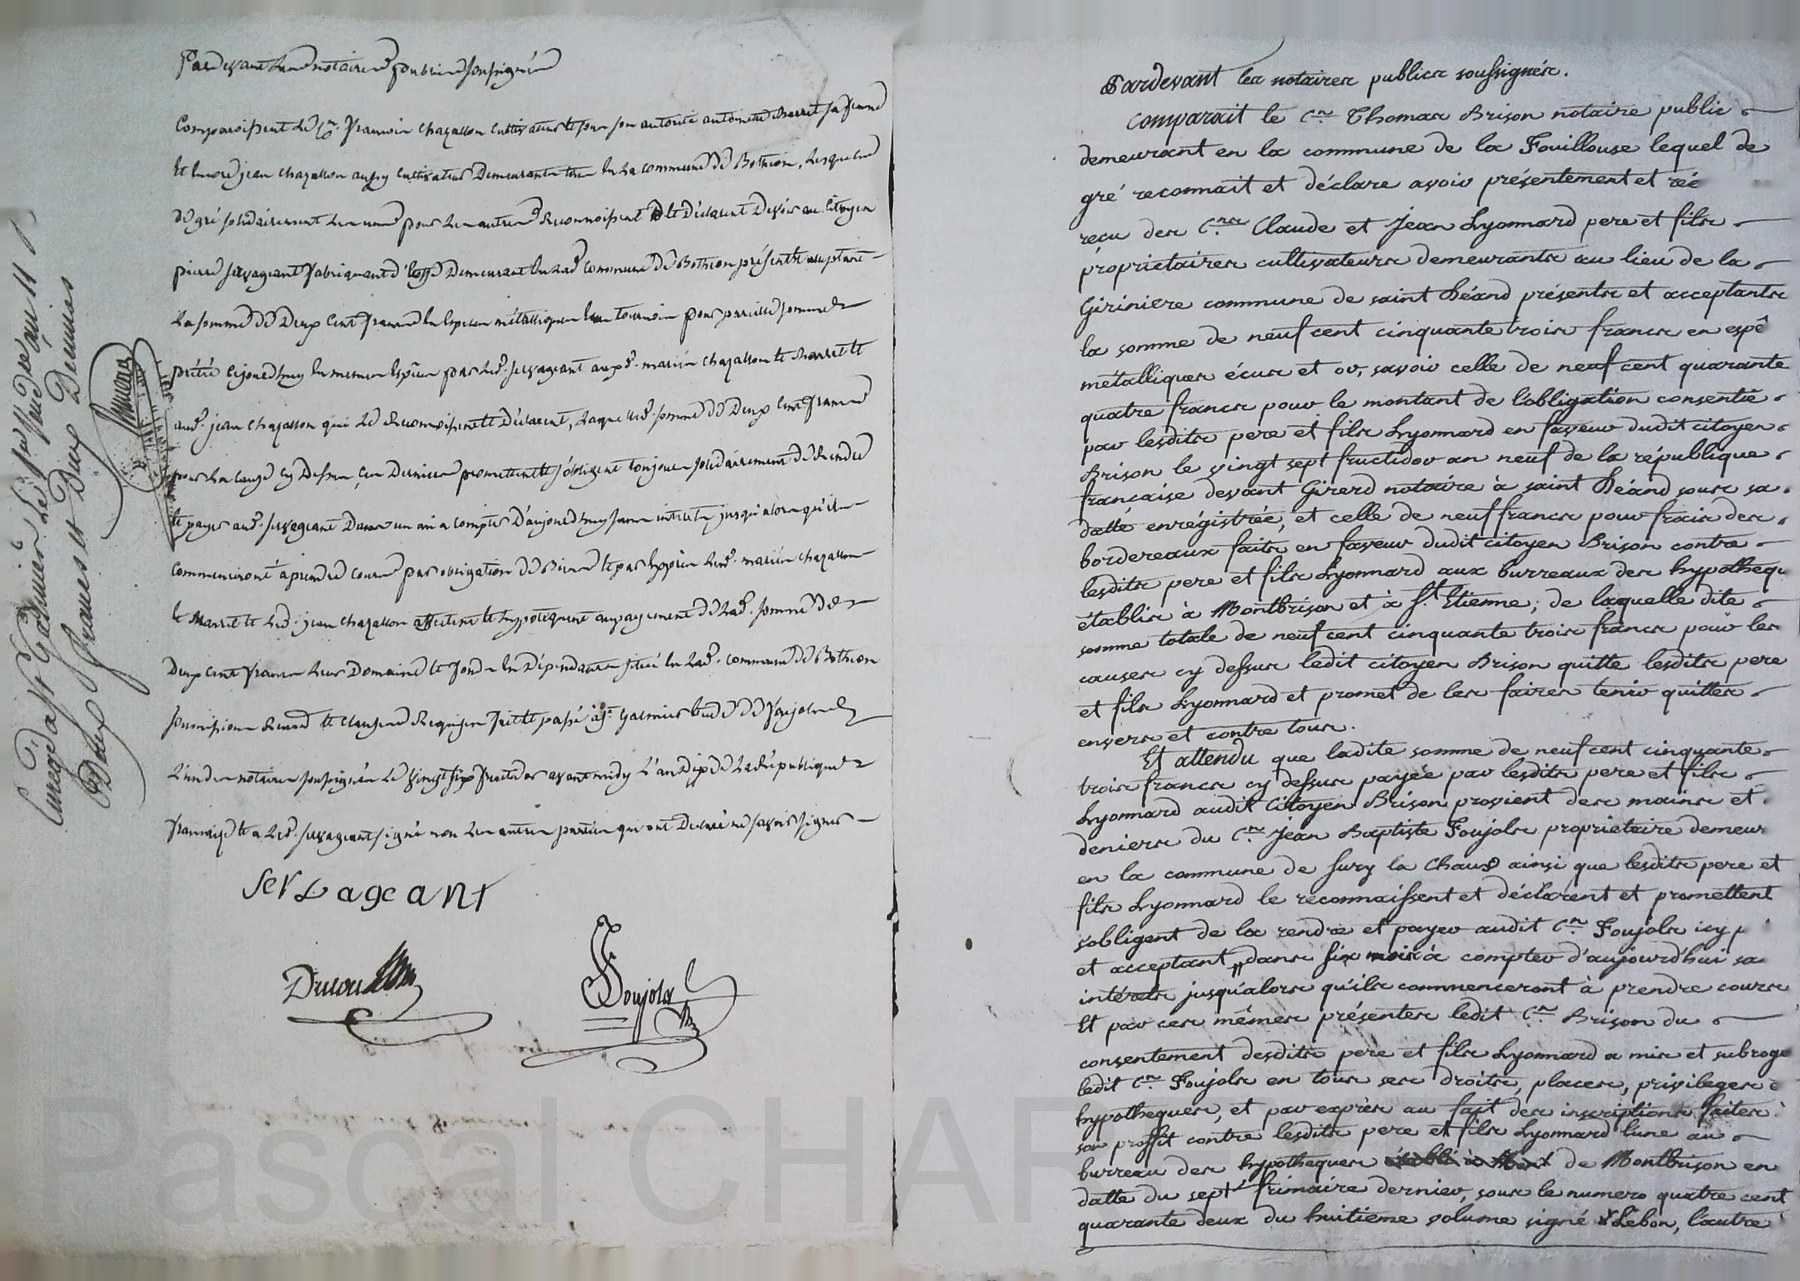 Pardevant les notaires publics soussignés
Comparoissent le Cn. François Chazallon Cultivateur et sous son autorité antoinette Marret sa femme
et encore jean Chazallon aussy Cultivateur Demeurants tous en la commune de Bothéon, lesquels
de gré solidairement les uns pour les autres Reconnoissent et Déclarent Devoir au Citoyen
pierre servageant fabriquant d'étoffe Demeurant en lad. commune de Bothéon présent et acceptant
La somme de Deux Cent francs En Espèces métalliques tournois pour pareille somme
prêtée cejourd'huy en mêmes Espèces par led. servageant auxd. mariés chazallon et Marret et
aud. jean chazallon qui le Reconnoissent et Déclarent, Laquelle d. somme de Deux Cent francs
pour les causes cy Dessus ces Derniers promettent et s'obligent toujours solidairement de Rendre
et payer aud. servageant Dans un an a compter D'aujourd'huy sans intérêts jusqu'alors qu'ils
Commenceront à prendre cours par obligation de Biens et par Exprès lesd. mariés chazallon
et Marret et led. jean chazallon affectent et hypotèquent au payement de lad. somme de
Deux cent francs leurs Domaine et fonds En Dépendants situés En lad. commune de Bothéon
soumissions Renonc. et clauses Requises fait et passé à st. Galmier Etude de foujols
L'un des notaires soussignés le vingt six fructidor avant midy l'an Dix de la République
française et a led. servageant signé non les autres parties qui ont Déclaré ne savoir signer
Servageant
Foujols
Enreg. à St Galmier le
Deux francs et Deux Décimes
Pardevant les notaires publics soussignés.
Comparait le Cen Thomas Brison notaire public
demeurant en la commune de la Fouillouse lequel de
gré reconnait et déclare avoir présentement et rée
reçu des Cens Claude et Jean Lyonnard pere et fils
propriétaires cultivateurs demeurants au lieu de la
Giriniere commune de saint Héand présents et acceptants
la somme de neuf cent cinquante trois francs en espê
métalliques écus et or, savoir celle de neuf cent quarante
quatre francs pour le montant de l'obligation consentie
par lesdits pere et fils Lyonnard en faveur dudit citoyen
Brison le vingt sept fructidor an neuf de la république
française devant Girerd notaire à saint Héand sous sa
datte enrégistrée, et celle de neuf francs pour frais des
bordereaux faits en faveur dudit citoyen Brison contre
lesdits pere et fils Lyonnard aux burreaux des hypothequ
établis à Montbrison et à St. Etienne; de laquelle dite
somme totale de neuf cent cinquante trois francs pour les
causes cy dessus ledit citoyen Brison quitte lesdits pere
et fils Lyonnard et promet de les faires tenir quittes
envers et contre tous.
Et attendu que ladite somme de neuf cent cinquante
trois francs cy dessus payée par lesdits pere et fils
Lyonnard audit citoyen Brison provient des mains et
deniers du Cen Jean Baptiste Foujols propriétaire demeur
en la commune de Sury la Chaux ainsi que lesdits pere et
fils Lyonnard le reconnaissent et déclarent et promettent
s'obligent de la rendre et payer audit Cen Foujols icy p
et acceptant, dans six mois à compter d'aujourd'hui sa
intérets jusqu'alors qu'ils commenceront à prendre cours
Et par ces mêmes présentes ledit Cen Brison du
consentement desdits pere et fils Lyonnard a mis et subrogé
ledit Cen Foujols en tous ses droits, places, privileges e
hypotheques, et par exprès au fait des inscriptions faites
son proffit contre lesdits pere et fils Lyonnard l'une au
burreau des hypotheques de Montbrison en
datte du sept frimaire dernier, sous le numero quatre cent
quarante deux du huitieme volume signé Lebon, l'autre
Pascal CHAR